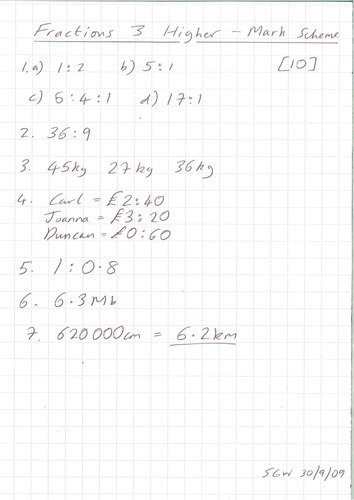 Fractions 3 Higher - Mark Scheme
1. a) 1:2 b) 5:1 [10]
c) 5:4:1 d) 17:1
2. 36:9
3. 45kg 27kg 36kg
4. Carl = £2:40
Joanna = £3:20
Duncan = £0:60
5. 1:0.8
6. 6.3Mb
7. 620000cm = 6.2km
SGW 30/9/09